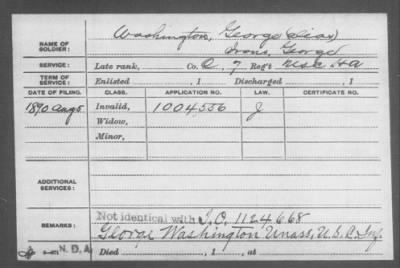 NAME OF SOLDIER: Washington, George (alias)
Irons, George
SERVICE: Late rank, Co. C, 7 Reg't U.S.C. H A
TERM OF SERVICE: Enlisted , 1 Discharged , 1
DATE OF FILING. CLASS. APPLICATION NO. LAW. CERTIFICATE NO.
1890 Aug 5 Invalid, 1004556 J
Widow,
Minor,
ADDITIONAL SERVICES:
REMARKS: Not identical with I.O. 1124668
George Washington Unass. U.S.C. Inf.
N.D.A. Died , 1 , at